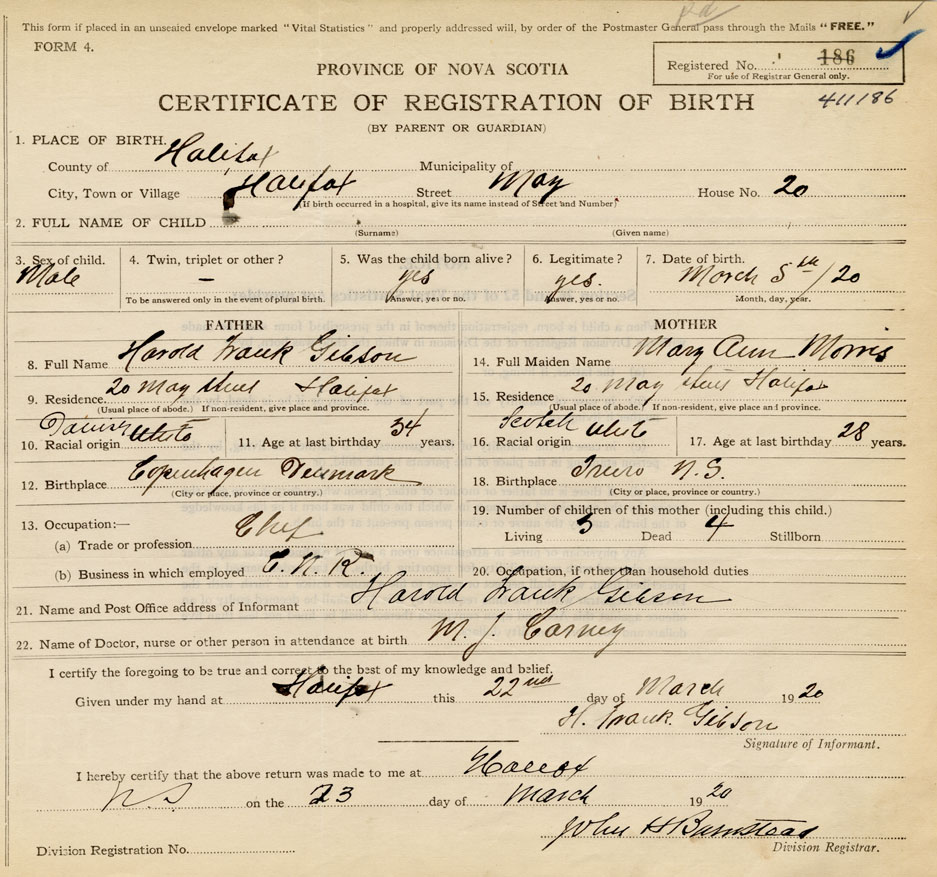 This form if placed in an unsealed envelope marked "Vital Statistics" and properly addressed will, by order of the Postmaster General pass through the Mails "FREE."
FORM 4.
Registered No. 186
For use of Registrar General only.
411186
PROVINCE OF NOVA SCOTIA
CERTIFICATE OF REGISTRATION OF BIRTH
(BY PARENT OR GUARDIAN)
1. PLACE OF BIRTH.
County of Halifax Municipality of
City, Town or Village Halifax Street May House No. 20
(If birth occurred in a hospital, give its name instead of Street and Number)
2. FULL NAME OF CHILD
(Surname) (Given name)
3. Sex of child. Male
4. Twin, triplet or other? —
To be answered only in the event of plural birth.
5. Was the child born alive? yes
Answer, yes or no.
6. Legitimate? yes.
Answer, yes or no.
7. Date of birth. March 5th/20
Month, day, year.
FATHER
8. Full Name Harold Frank Gibson
9. Residence. 20 May Halifax
(Usual place of abode.) If non-resident, give place and province.
10. Racial origin Danish White 11. Age at last birthday 34 years.
12. Birthplace Copenhagen Denmark
(City or place, province or country.)
13. Occupation:—
(a) Trade or profession Chef
(b) Business in which employed C.N.R.
MOTHER
14. Full Maiden Name Mary Ann Morris
15. Residence 20 May Halifax
(Usual place of abode.) If non-resident, give place and province.
16. Racial origin Scotch White 17. Age at last birthday 28 years.
18. Birthplace Truro N.S.
(City or place, province or country.)
19. Number of children of this mother (including this child.)
Living Dead 4 Stillborn
20. Occupation, if other than household duties
21. Name and Post Office address of Informant Harold Frank Gibson
22. Name of Doctor, nurse or other person in attendance at birth M. J. Carney
I certify the foregoing to be true and correct to the best of my knowledge and belief.
Given under my hand at Halifax this 22nd day of March 1920
H. Frank Gibson
Signature of Informant.
I hereby certify that the above return was made to me at Halifax
N S on the 23 day of March 1920
John H Barnstead
Division Registrar.
Division Registration No.